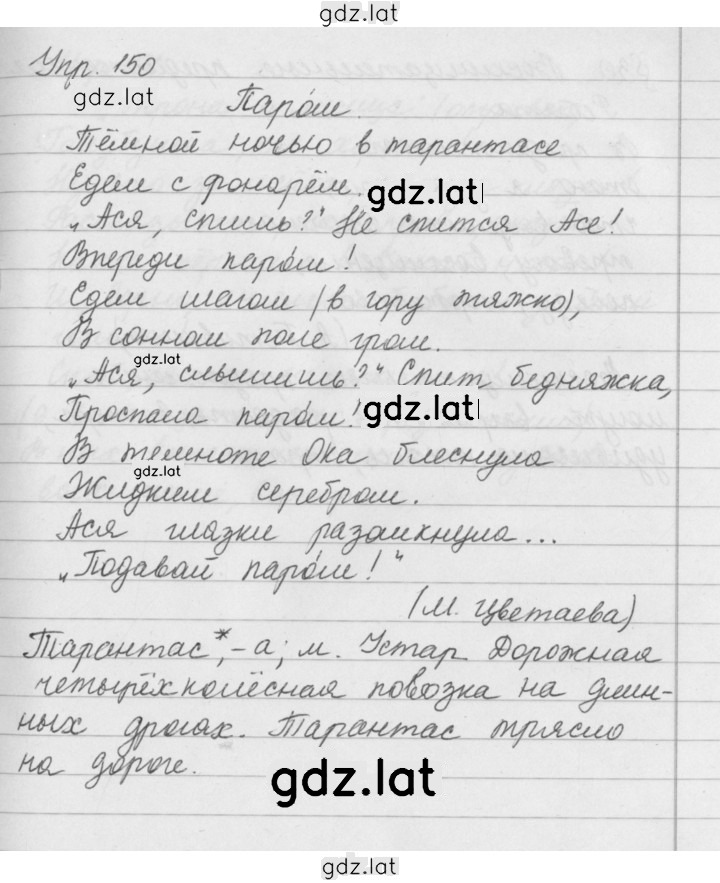 gdz.lat
Упр. 150
gdz.lat
Паро́м.
Тёмной ночью в тарантасе
Едем с фонарём. gdz.lat
„Ася, спишь?" Не спится Асе!
Впереди паро́м!
Едем шагом (в гору тяжко),
В сонном поле гром.
gdz.lat
„Ася, слышишь?" Спит бедняжка,
Проспала паро́м! gdz.lat
В темноте Ока блеснула
gdz.lat
Жидким серебром.
Ася глазки разомкнула...
„Подавай паро́м!"
(М. Цветаева)
Тарантас*,-а; м. Устар Дорожная
четырёхколёсная повозка на длин-
ных дрогах. Тарантас трясло
на дороге.
gdz.lat
gdz.lat